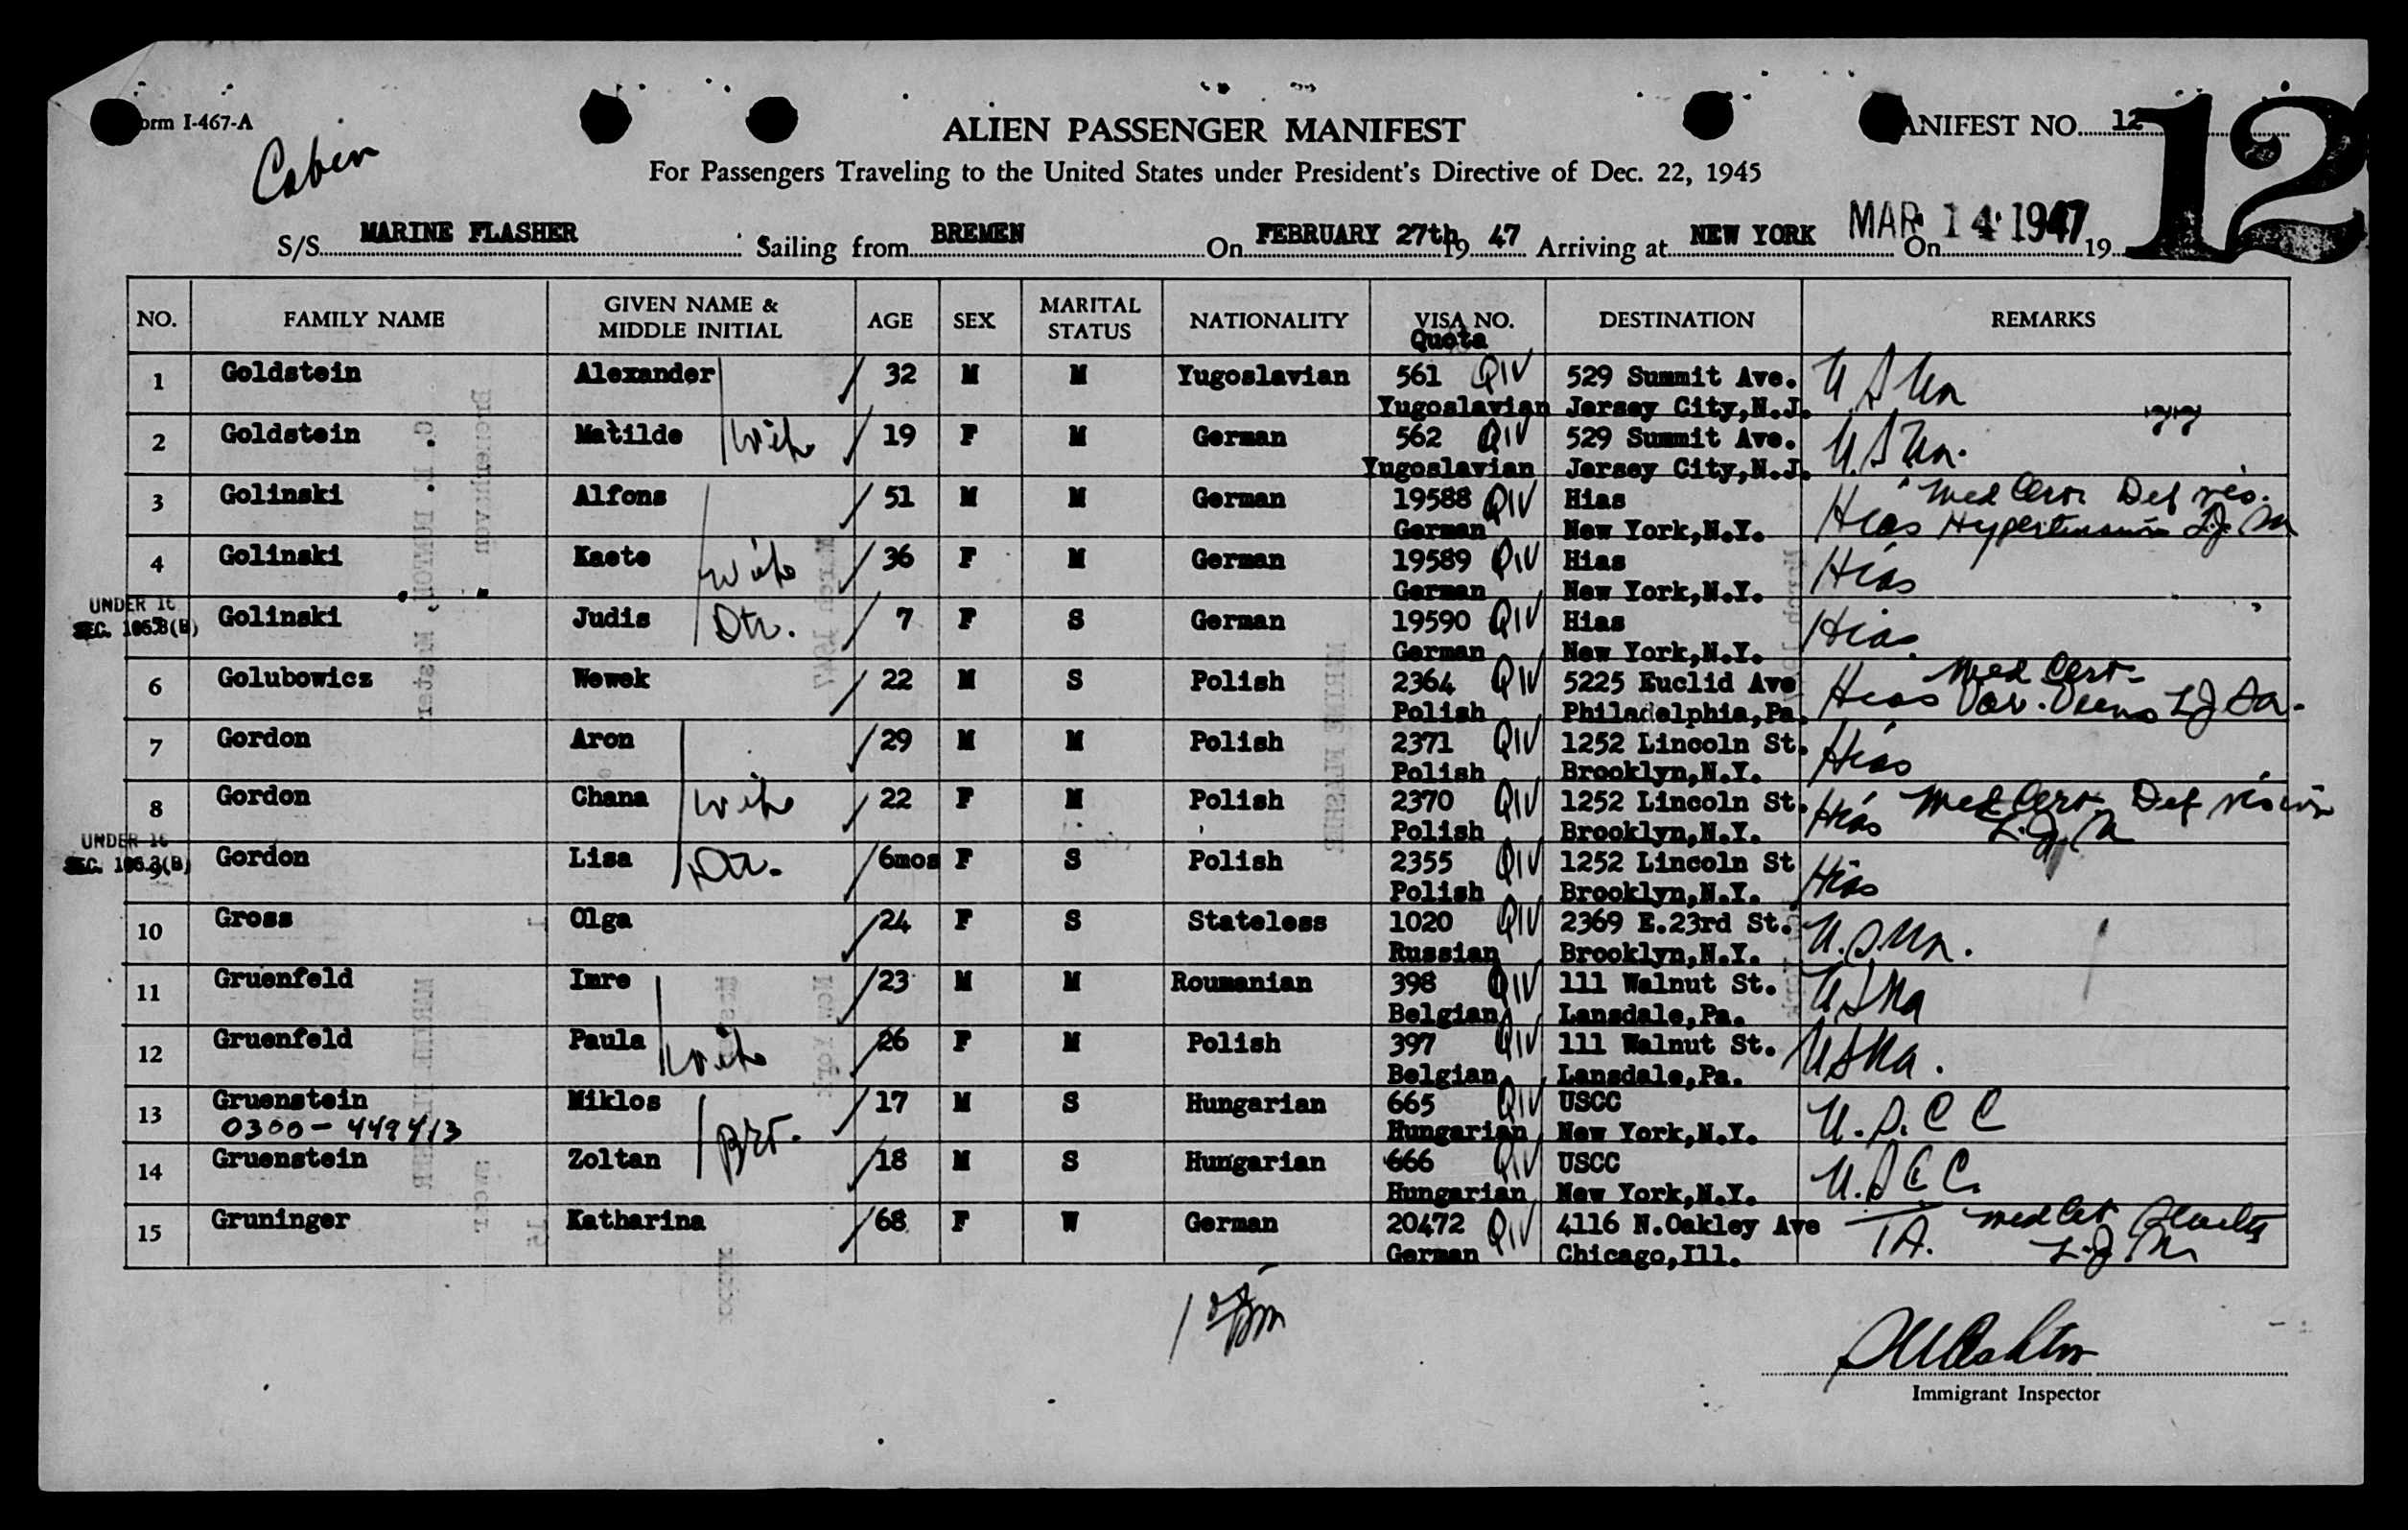 Form I-467-A
Cabin
ALIEN PASSENGER MANIFEST
MANIFEST NO. 12
12
For Passengers Traveling to the United States under President's Directive of Dec. 22, 1945
S/S MARINE FLASHER Sailing from BREMEN On FEBRUARY 27th 19 47 Arriving at NEW YORK On MAR 14 1947 19
NO. FAMILY NAME GIVEN NAME & MIDDLE INITIAL AGE SEX MARITAL STATUS NATIONALITY VISA NO. Quota DESTINATION REMARKS
1 Goldstein Alexander 32 M M Yugoslavian 561 QIV 529 Summit Ave.
Yugoslavian Jersey City,N.J.
2 Goldstein Matilde Wife 19 F M German 562 QIV 529 Summit Ave.
Yugoslavian Jersey City,N.J.
3 Golinski Alfons 51 M M German 19588 QIV Hias Med Cert Def vis.
German New York,N.Y. Hias Hypertension L.J. M
4 Golinski Kaete Wife 36 F M German 19589 QIV Hias Hias
German New York,N.Y.
UNDER 16
SEC. 105.3(B) Golinski Judis Dtr. 7 F S German 19590 QIV Hias Hias
German New York,N.Y.
6 Golubowicz Wewek 22 M S Polish 2364 QIV 5225 Euclid Ave Med Cert
Polish Philadelphia,Pa. Hias Var. Veins
7 Gordon Aron 29 M M Polish 2371 QIV 1252 Lincoln St. Hias
Polish Brooklyn,N.Y.
8 Gordon Chana Wife 22 F M Polish 2370 QIV 1252 Lincoln St. Hias Med Cert Def vision
Polish Brooklyn,N.Y. L.J. M
UNDER 16
SEC. 105.3(B) 9 Gordon Lisa Dtr. 6mos F S Polish 2355 QIV 1252 Lincoln St Hias
Polish Brooklyn,N.Y.
10 Gross Olga 24 F S Stateless 1020 QIV 2369 E.23rd St.
Russian Brooklyn,N.Y.
11 Gruenfeld Imre 23 M M Roumanian 398 QIV 111 Walnut St. USNa
Belgian Lansdale,Pa.
12 Gruenfeld Paula Wife 26 F M Polish 397 QIV 111 Walnut St. USNa.
Belgian Lansdale,Pa.
13 Gruenstein Miklos 17 M S Hungarian 665 QIV USCC U.S.C C
0300-449413 Hungarian New York,N.Y.
14 Gruenstein Zoltan Bro. 18 M S Hungarian 666 QIV USCC U.S C C.
Hungarian New York,N.Y.
15 Gruninger Katharina 68 F W German 20472 QIV 4116 N.Oakley Ave T.A. Med Cert
German Chicago,Ill. L.J M
Immigrant Inspector